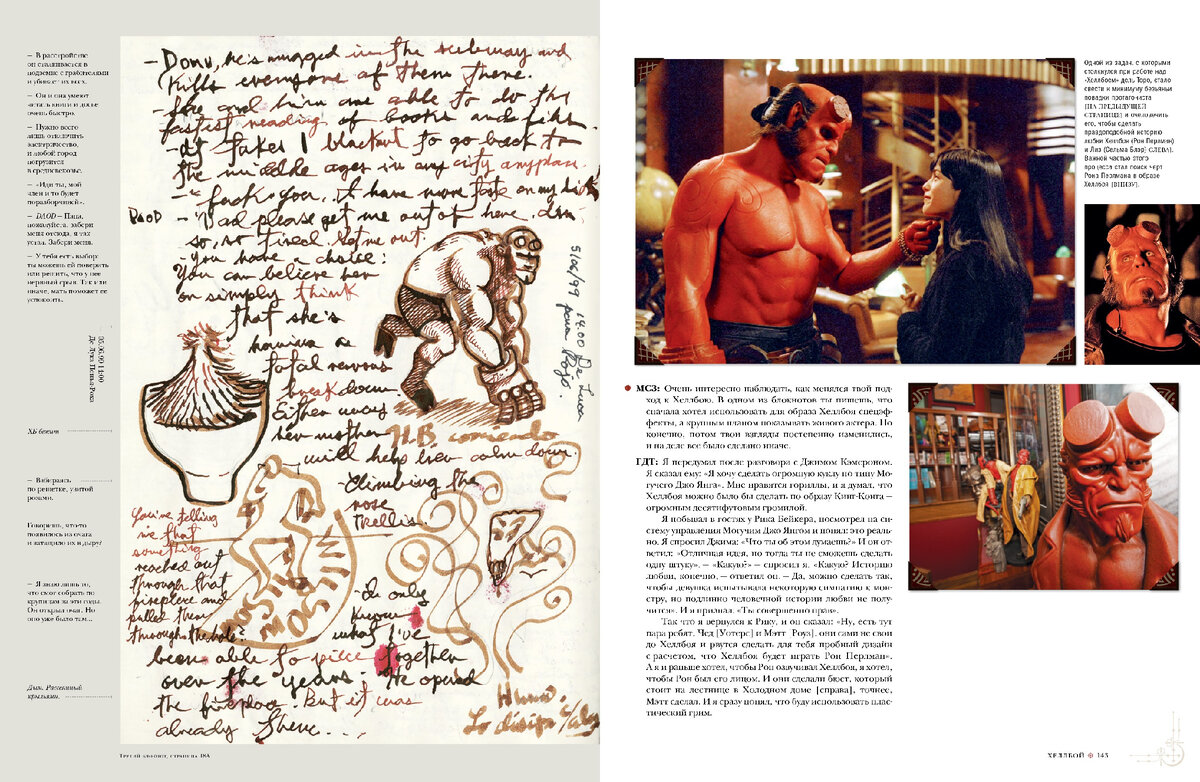 — В расстройстве
он сталкивается в
подземке с грабителями
и убивает их всех.
— Он и она умеют
читать книги и досье
очень быстро.
— Нужно всего
лишь отключить
электричество,
и любой город
погрузится
в средневековье.
— «Иди ты, мой
член и то будет
поразборчивей».
— DAOD – Папа,
пожалуйста, забери
меня отсюда, я так
устал. Забери меня.
— У тебя есть выбор:
ты можешь ей поверить
или решить, что у нее
нервный срыв. Так или
иначе, мать поможет ее
успокоить.
ХБ бежит
— Взбираясь
по решетке, увитой
розами.
Говоришь, что-то
появилось из очага
и затащило их в дыру?
— Я знаю лишь то,
что смог собрать по
крупицам за эти годы.
Он открыл очаг. Но
оно уже было там...
Дым. Рассеянный
крыльями.
- Domu, he's mugged in the subway and
kills everyone of them there.
- She and him are able to do the
fastest reading of books and files.
- It takes 1 blackout to go back to
the middle ages in any city anyplace
- fuck you. I have more taste on my dick
DAOD - "Dad please get me out of here, I'm
so, so tired. Get me out.
- You have a choice:
You can believe her
or simply think
that she's
having a
total nervous
breakdown.
Either way
her mother
will help her calm down.
H.B. corriendo
- Climbing the
rose
trellis.
You're telling
is that
something
reached out
through that
fireplace and
pulled them
through the hole?
- I only
know
what I've
been able to piece together
over the years. He opened
the fireplace. But it was
already there...
Humo
Lo disipa c/alas
5/06/99 14:00 De Luca
para Rojo.
Третий блокнот, страница 18А
Одной из задач, с которыми
столкнулся при работе над
«Хеллбоем» дель Торо, стало
свести к минимуму безьяньи
повадки протагониста
[НА ПРЕДЫДУЩЕЙ
СТРАНИЦЕ] и очеловечить
его, чтобы сделать
правдоподобной историю
любви Хеллбоя (Рон Перлман)
и Лиз (Сельма Блэр) [СЛЕВА].
Важной частью этого
процесса стал поиск черт
Рона Перлмана в образе
Хеллбоя [ВНИЗУ].
МСЗ: Очень интересно наблюдать, как менялся твой под-
ход к Хеллбою. В одном из блокнотов ты пишешь, что
сначала хотел использовать для образа Хеллбоя спецэф-
фекты, а крупным планом показывать живого актера. Но
конечно, потом твои взгляды постепенно изменились,
и на деле все было сделано иначе.
ГДТ: Я передумал после разговора с Джимом Кэмероном.
Я сказал ему: «Я хочу сделать огромную куклу по типу Мо-
гучего Джо Янга». Мне нравятся гориллы, и я думал, что
Хеллбоя можно было бы сделать по образу Кинг-Конга –
огромным десятифутовым громилой.
Я побывал в гостях у Рика Бейкера, посмотрел на си-
стему управления Могучим Джо Янгом и понял: это реаль-
но. Я спросил Джима: «Что ты об этом думаешь?» И он от-
ветил: «Отличная идея, но тогда ты не сможешь сделать
одну штуку». – «Какую?» – спросил я. «Какую? Историю
любви, конечно, – ответил он. – Да, можно сделать так,
чтобы девушка испытывала некоторую симпатию к мон-
стру, но подлинно человечной истории любви не полу-
чится». И я признал: «Ты совершенно прав».
Так что я вернулся к Рику, и он сказал: «Ну, есть тут
пара ребят, Чед [Уотерс] и Мэтт Роуз], они сами не свои
до Хеллбоя и рвутся сделать для тебя пробный дизайн
с расчетом, что Хеллбоя будет играть Рон Перлман».
А я и раньше хотел, чтобы Рон озвучивал Хеллбоя, я хотел,
чтобы Рон был его лицом. И они сделали бюст, который
стоит на лестнице в Холодном доме [справа], точнее,
Мэтт сделал. И я сразу понял, что буду использовать плас-
тический грим.
ХЕЛЛБОЙ 143